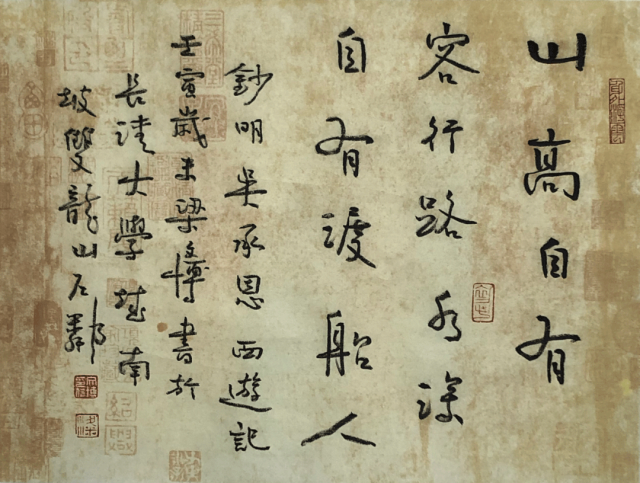 山高自有
客行路水深
自有渡船人
鈔明吴承恩西遊記
壬寅歲末梁文博書於
長清大學城南
坡雙龍山石麟